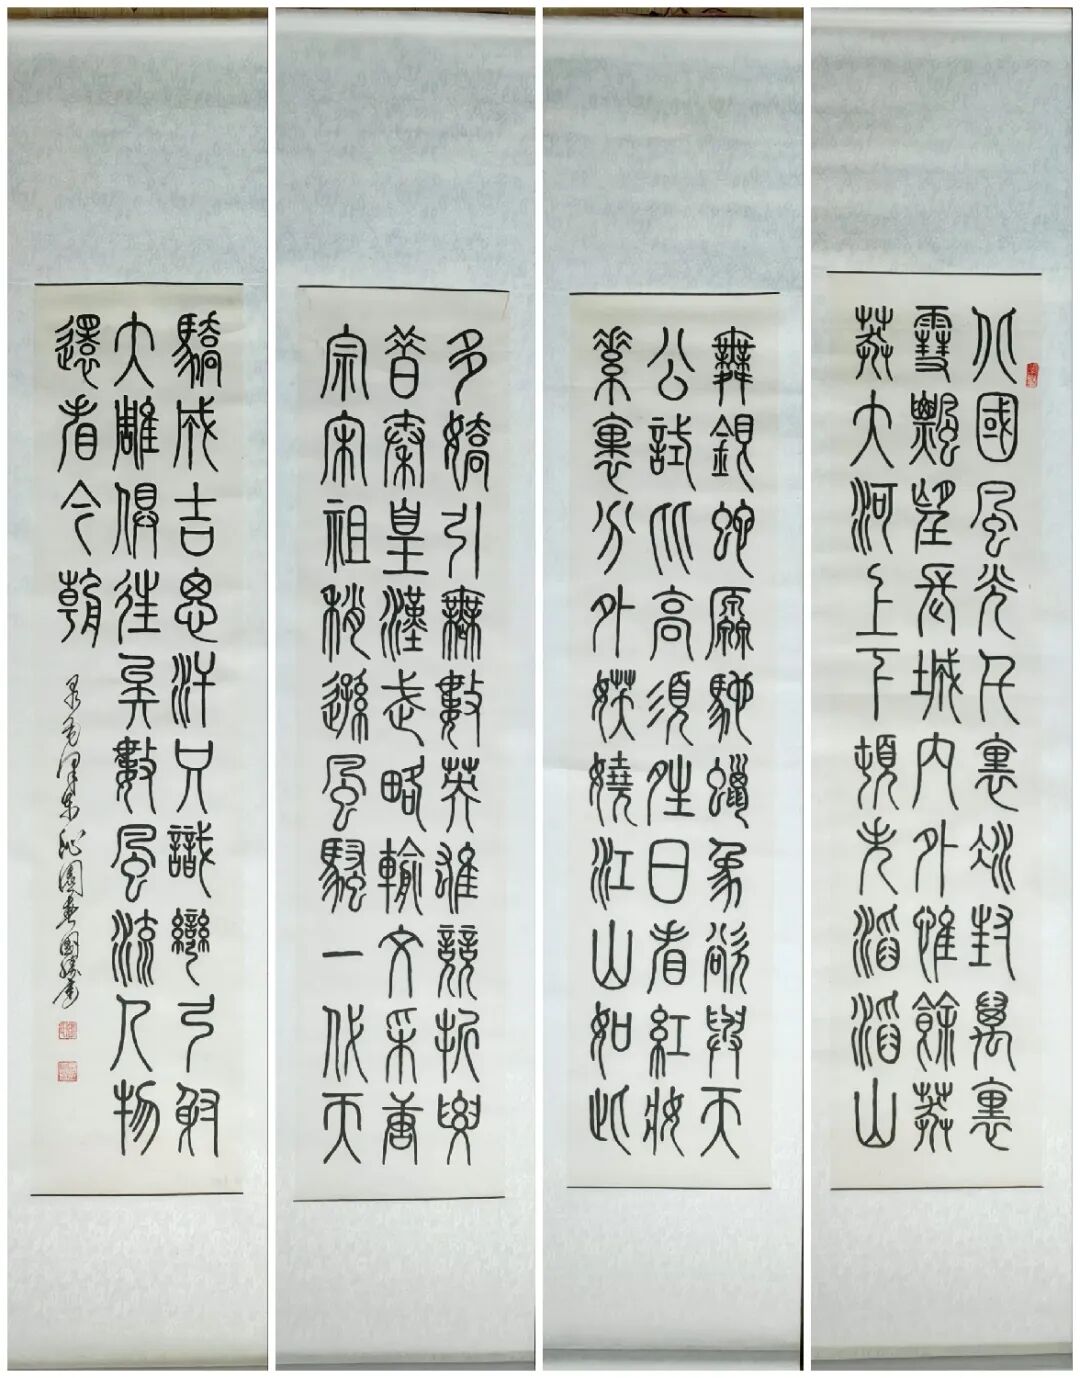 北國風光千裏冰封萬裏
雪飄望長城內外惟餘莽
莽大河上下頓失滔滔山
舞銀蛇原馳蠟象欲與天
公試比高須晴日看紅妝
素裹分外妖嬈江山如此
多嬌引無數英雄競折腰
昔秦皇漢武略輸文采唐
宗宋祖稍遜風騷一代天
驕成吉思汗只識彎弓射
大雕俱往矣數風流人物
還看今朝
录毛澤東沁園春國勝書